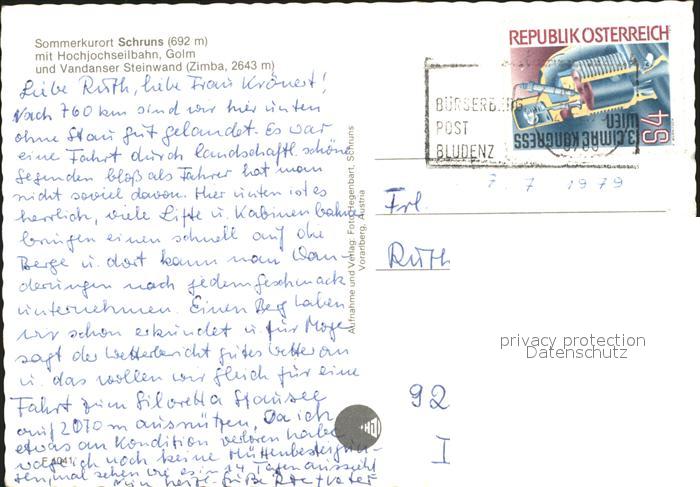 Sommerkurort Schruns (692 m)
mit Hochjochseilbahn, Golm
und Vandanser Steinwand (Zimba, 2643 m)
Liebe Ruth, liebe Frau Krönert!
Nach 760 km sind wir hier unten
ohne Stau gut gelandet. Es war
eine Fahrt durch landschaftl. schöne
Gegenden bloß als Fahrer hat man
nicht soviel davon. Hier unten ist es
herrlich, viele Lifte u. Kabinenbahnen
bringen einen schnell auf die
Berge u. dort kann man Wan-
derungen nach jedem Geschmack
unternehmen. Einen Berg haben
wir schon erkundet u. für Morgen
sagt der Wetterbericht gutes Wetter an
u. das wollen wir gleich für eine
Fahrt zum Silvretta Stausee
auf 2070 m ausnützen. Da ich
etwas an Kondition verloren habe
noch keine Hüttenbesteigun-
gen, mal sehen wie es in 14 Tagen aussieht
F 4041
Aufnahme und Verlag: Foto Hegenbart, Schruns
Vorarlberg, Austria
REPUBLIK ÖSTERREICH
13. CIMAC KONGRESS
WIEN
S4
BÜRSERBERG
POST
BLUDENZ
7. 7 1979
Frl.
Ruth
privacy protection
Datenschutz
92
I